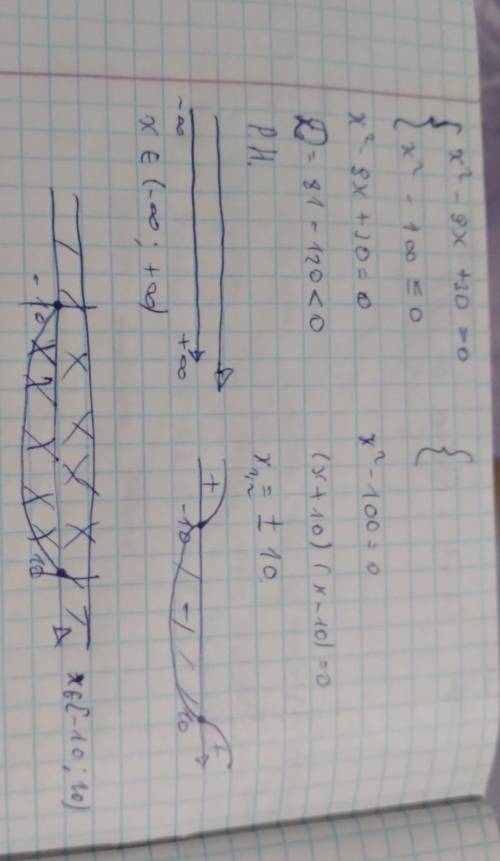 { x² - 9x + 30 > 0
{ x² - 100 ≤ 0
{
x² - 9x + 30 = 0
D = 81 - 120 < 0
-∞ +∞
x ∈ (-∞; +∞)
x² - 100 = 0
(x + 10) (x - 10) = 0
x₁,₂ = ± 10
+ - +
-10 10
-10 10
x ∈ [-10; 10)